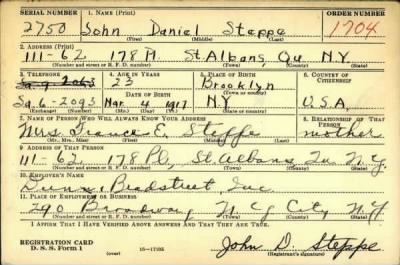 SERIAL NUMBER 1. NAME (Print) ORDER NUMBER
2750 John Daniel Steppe 1704
(First) (Middle) (Last)
2. ADDRESS (Print)
111-62 178 Pl. St. Albans Qu. N.Y.
(Number and street or R. F. D. number) (Town) (County) (State)
3. TELEPHONE 4. AGE IN YEARS 5. PLACE OF BIRTH 6. COUNTRY OF CITIZENSHIP
23 Brooklyn
DATE OF BIRTH (Town or county)
6-2093 Mar. 4 1917 N.Y. U.S.A.
(Exchange) (Number) (Mo.) (Day) (Yr.) (State or country)
7. NAME OF PERSON WHO WILL ALWAYS KNOW YOUR ADDRESS 8. RELATIONSHIP OF THAT PERSON
Mrs. E. Steppe mother
(Mr., Mrs., Miss) (First) (Middle) (Last)
9. ADDRESS OF THAT PERSON
111-62 178 Pl, St. Albans, N.Y.
(Number and street or R. F. D. number) (Town) (County) (State)
10. EMPLOYER'S NAME
Bradstreet Inc
11. PLACE OF EMPLOYMENT OR BUSINESS
290 Broadway N.Y. City N.Y.
(Number and street or R. F. D. number) (Town) (County) (State)
I AFFIRM THAT I HAVE VERIFIED ABOVE ANSWERS AND THAT THEY ARE TRUE.
REGISTRATION CARD
D. S. S. Form 1 (over) John D. Steppe
(Registrant's signature)